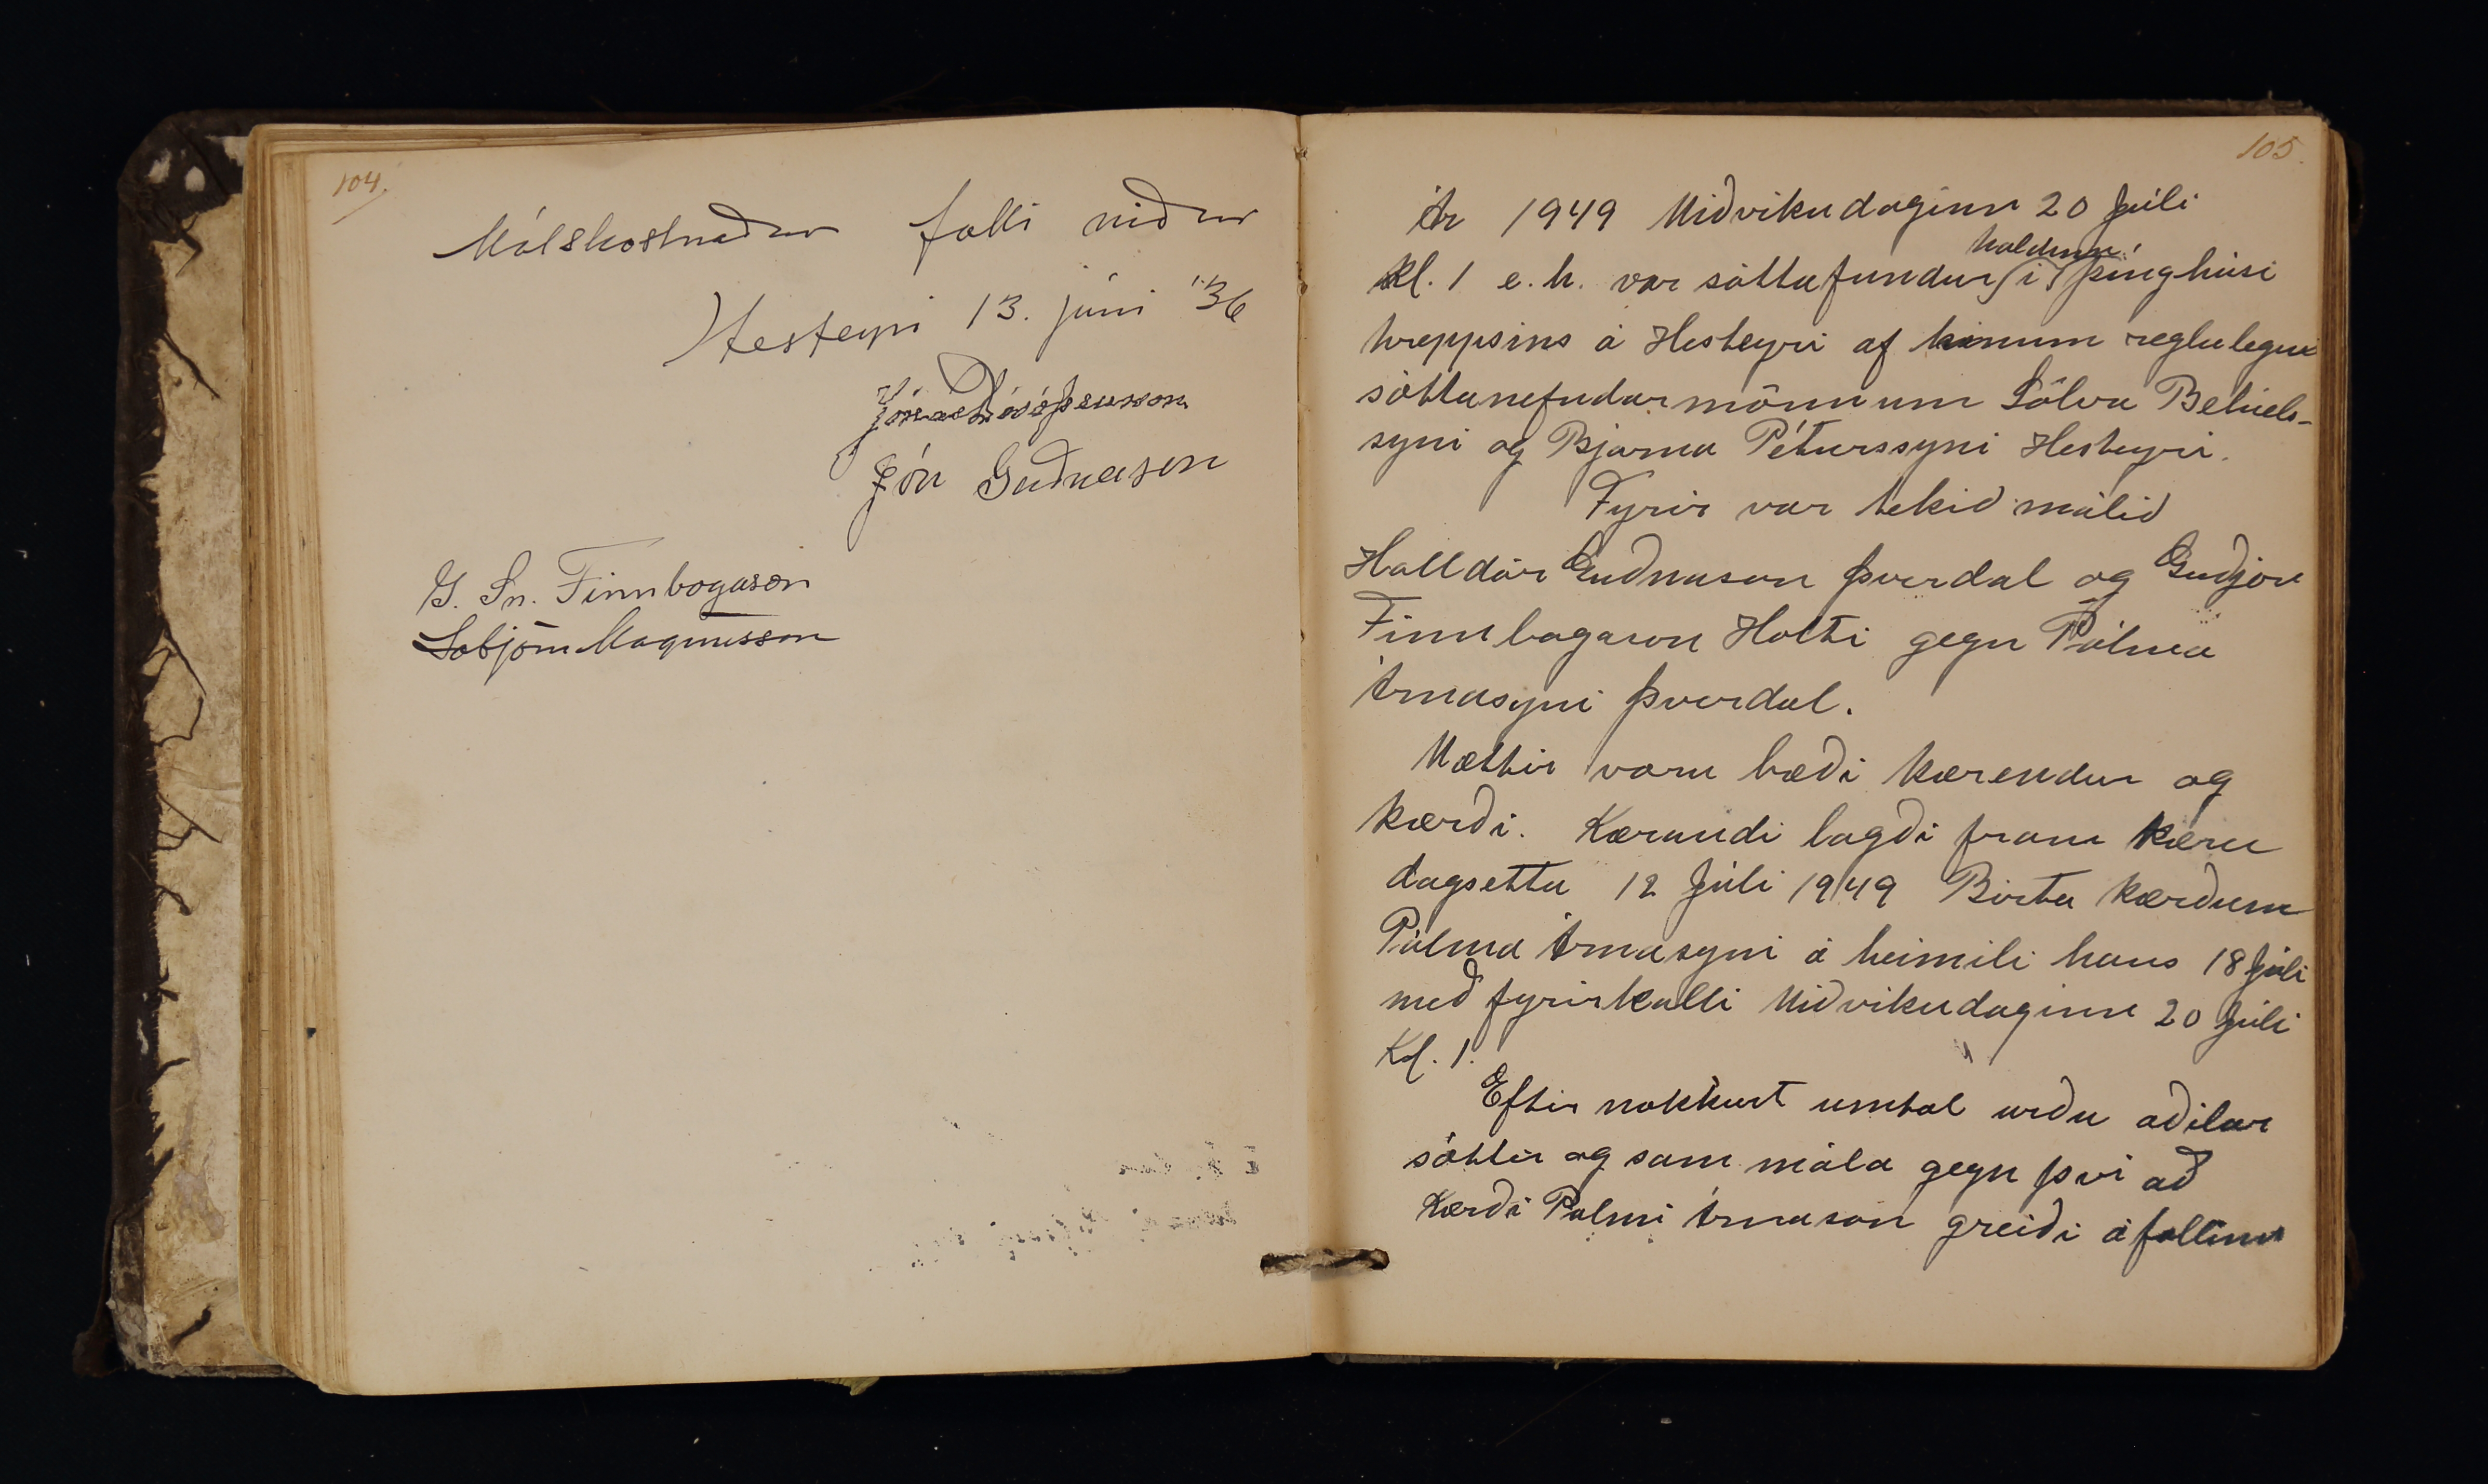 104.
Málskostnaður falli niður
Hesteyri 13. júni '36
Jón Guðnason
G. Sn. Finnbogason
Sobjörn Magnusson
105.
Ár 1949 Miðvikudaginn 20 Júli
haldinn
Kl. 1 e.h. var sáttafundur í þinghúsi
hreppsins á Hesteyri af hinum reglulegu
sáttanefndarmönnum Sölva Betúels-
syni og Bjarna Péturssyni Hesteyri.
Fyrir var tekið málið
Halldór Guðnason Þverdal og Guðjón
Finnbogason Holti gegn Pálma
Árnasyni Þverdal.
Mættir voru bæði kærendur og
kærði. Kærandi lagði fram kæru
dagsetta 12 Júli 1949 Birta kærðum
Pálma Árnasyni á heimili hans 18 Júli
með fyrirkalli Miðvikudaginn 20 Júli
Kl. 1.
Eftir nokkurt umtal urðu aðilar
sáttir og sam mála gegn því að
Kærði Palmi Árnason greiði áfallinn